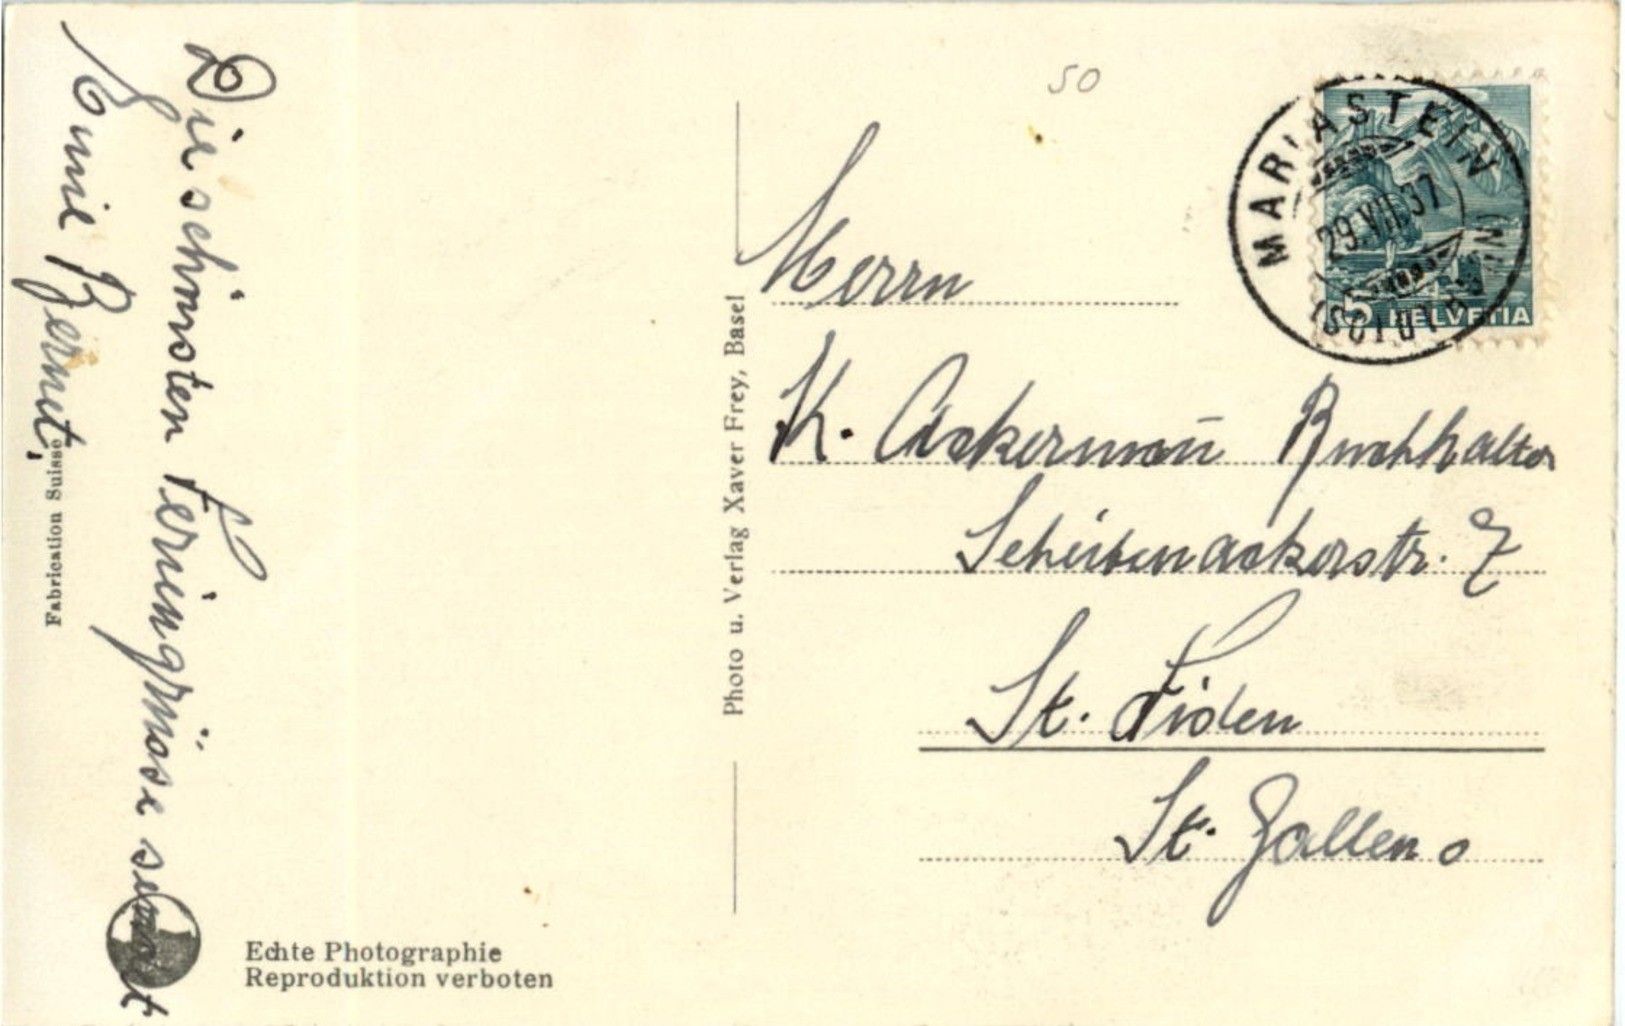 Die schönsten Feriengrüsse sendet
Emil Bernet.
Fabrication Suisse
Echte Photographie
Reproduktion verboten
Photo u. Verlag Xaver Frey, Basel
50
MARIASTEIN
29.VII.37
(SOLOTHURN)
5 HELVETIA
Herrn
K. Ackermañ Buchhalter
Scheibenackerstr. 7
St. Fiden
St. Gallen O